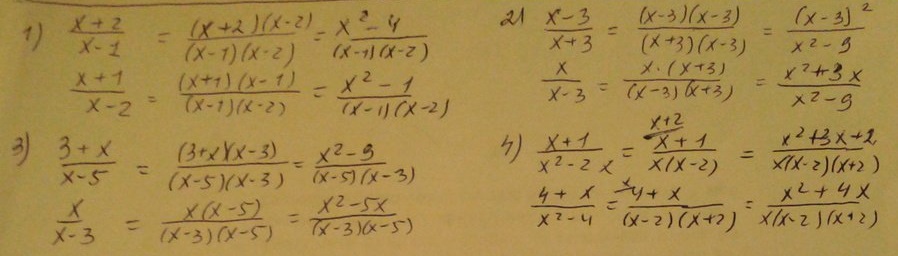 1) x+2/x-1 = (x+2)(x-2)/(x-1)(x-2) = x²-4/(x-1)(x-2)
x+1/x-2 = (x+1)(x-1)/(x-1)(x-2) = x²-1/(x-1)(x-2)
2) x-3/x+3 = (x-3)(x-3)/(x+3)(x-3) = (x-3)²/x²-9
x/x-3 = x·(x+3)/(x-3)(x+3) = x²+3x/x²-9
3) 3+x/x-5 = (3+x)(x-3)/(x-5)(x-3) = x²-9/(x-5)(x-3)
x/x-3 = x(x-5)/(x-3)(x-5) = x²-5x/(x-3)(x-5)
4) x+1/x²-2x = x+2/ x+1/x(x-2) = x²+3x+2/x(x-2)(x+2)
4+x/x²-4 = x/ 4+x/(x-2)(x+2) = x²+4x/x(x-2)(x+2)